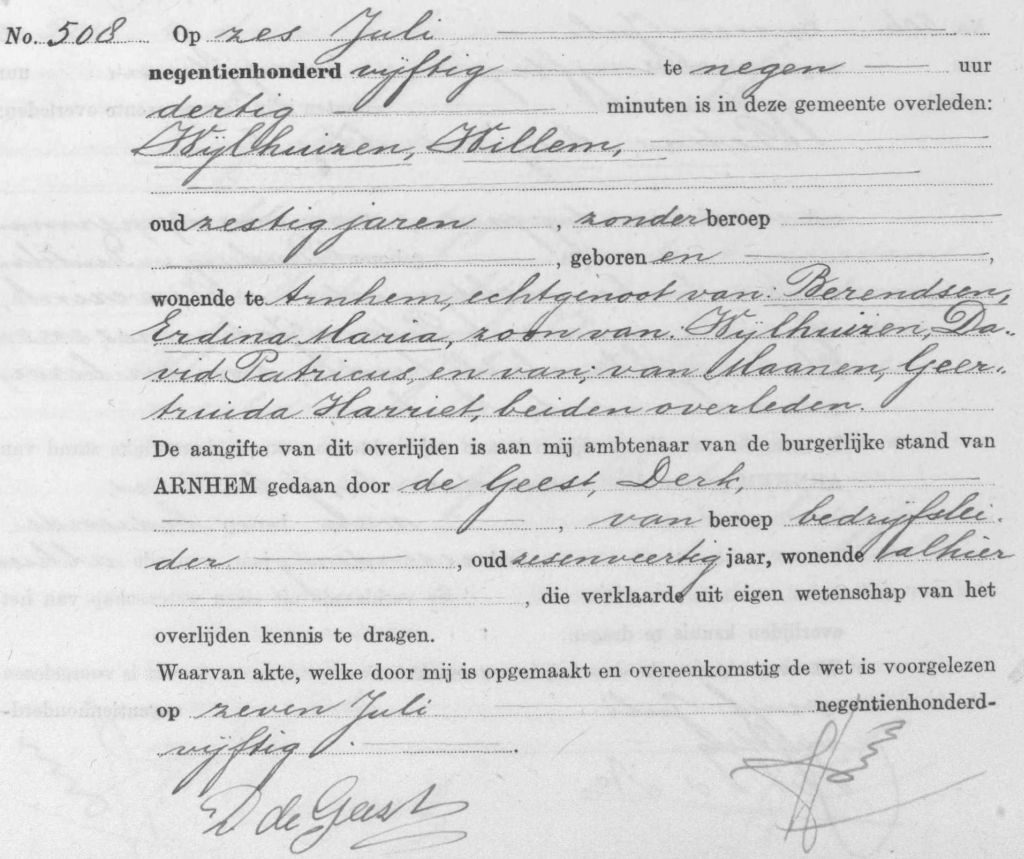 No. 508 Op zes Juli
negentienhonderd vijftig te negen uur
dertig minuten is in deze gemeente overleden:
Wijlhuizen, Willem,
oud zestig jaren, zonder beroep
, geboren en ,
wonende te Arnhem, echtgenoot van: Berendsen,
Erdina Maria, zoon van: Wijlhuizen, Da-
vid Patricus, en van: van Maanen, Geer-
truida Harriet, beiden overleden.
De aangifte van dit overlijden is aan mij ambtenaar van de burgerlijke stand van
ARNHEM gedaan door de Geest, Derk,
van beroep bedrijfslei-
der , oud zesenveertig jaar, wonende alhier
, die verklaarde uit eigen wetenschap van het
overlijden kennis te dragen.
Waarvan akte, welke door mij is opgemaakt en overeenkomstig de wet is voorgelezen
op zeven Juli negentienhonderd-
vijftig .
D de Geest